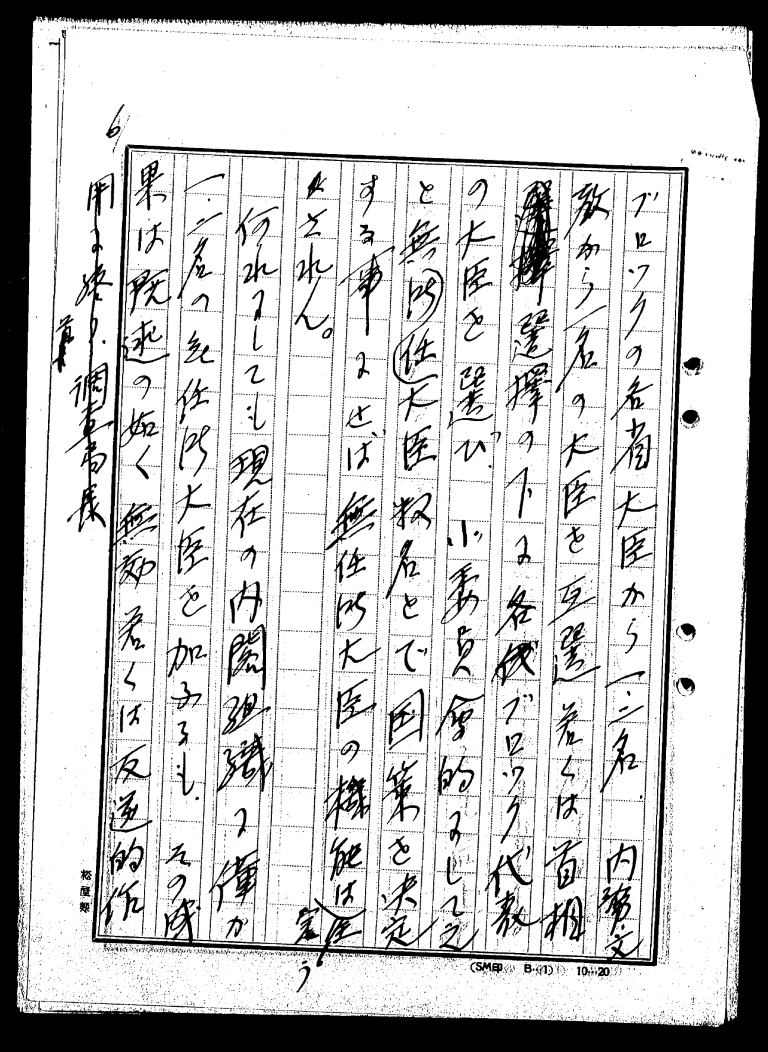 6
ブロックの各省大臣から一、二名、内務、文
教から一名の大臣を互選若くは首相
選擇の下に各ブロック代表
の大臣を選び、小委員会的にして之
と無所任大臣数名とで国策を決定
する事にせば無任所大臣の機能は
されん。
何れにしても現在の内閣組織に僅か
一、二名の無任所大臣を加ふるも、その成
果は既述の如く無効若くは反逆的作
用に終り、
調査局長
(SMEI B-1) 10-20